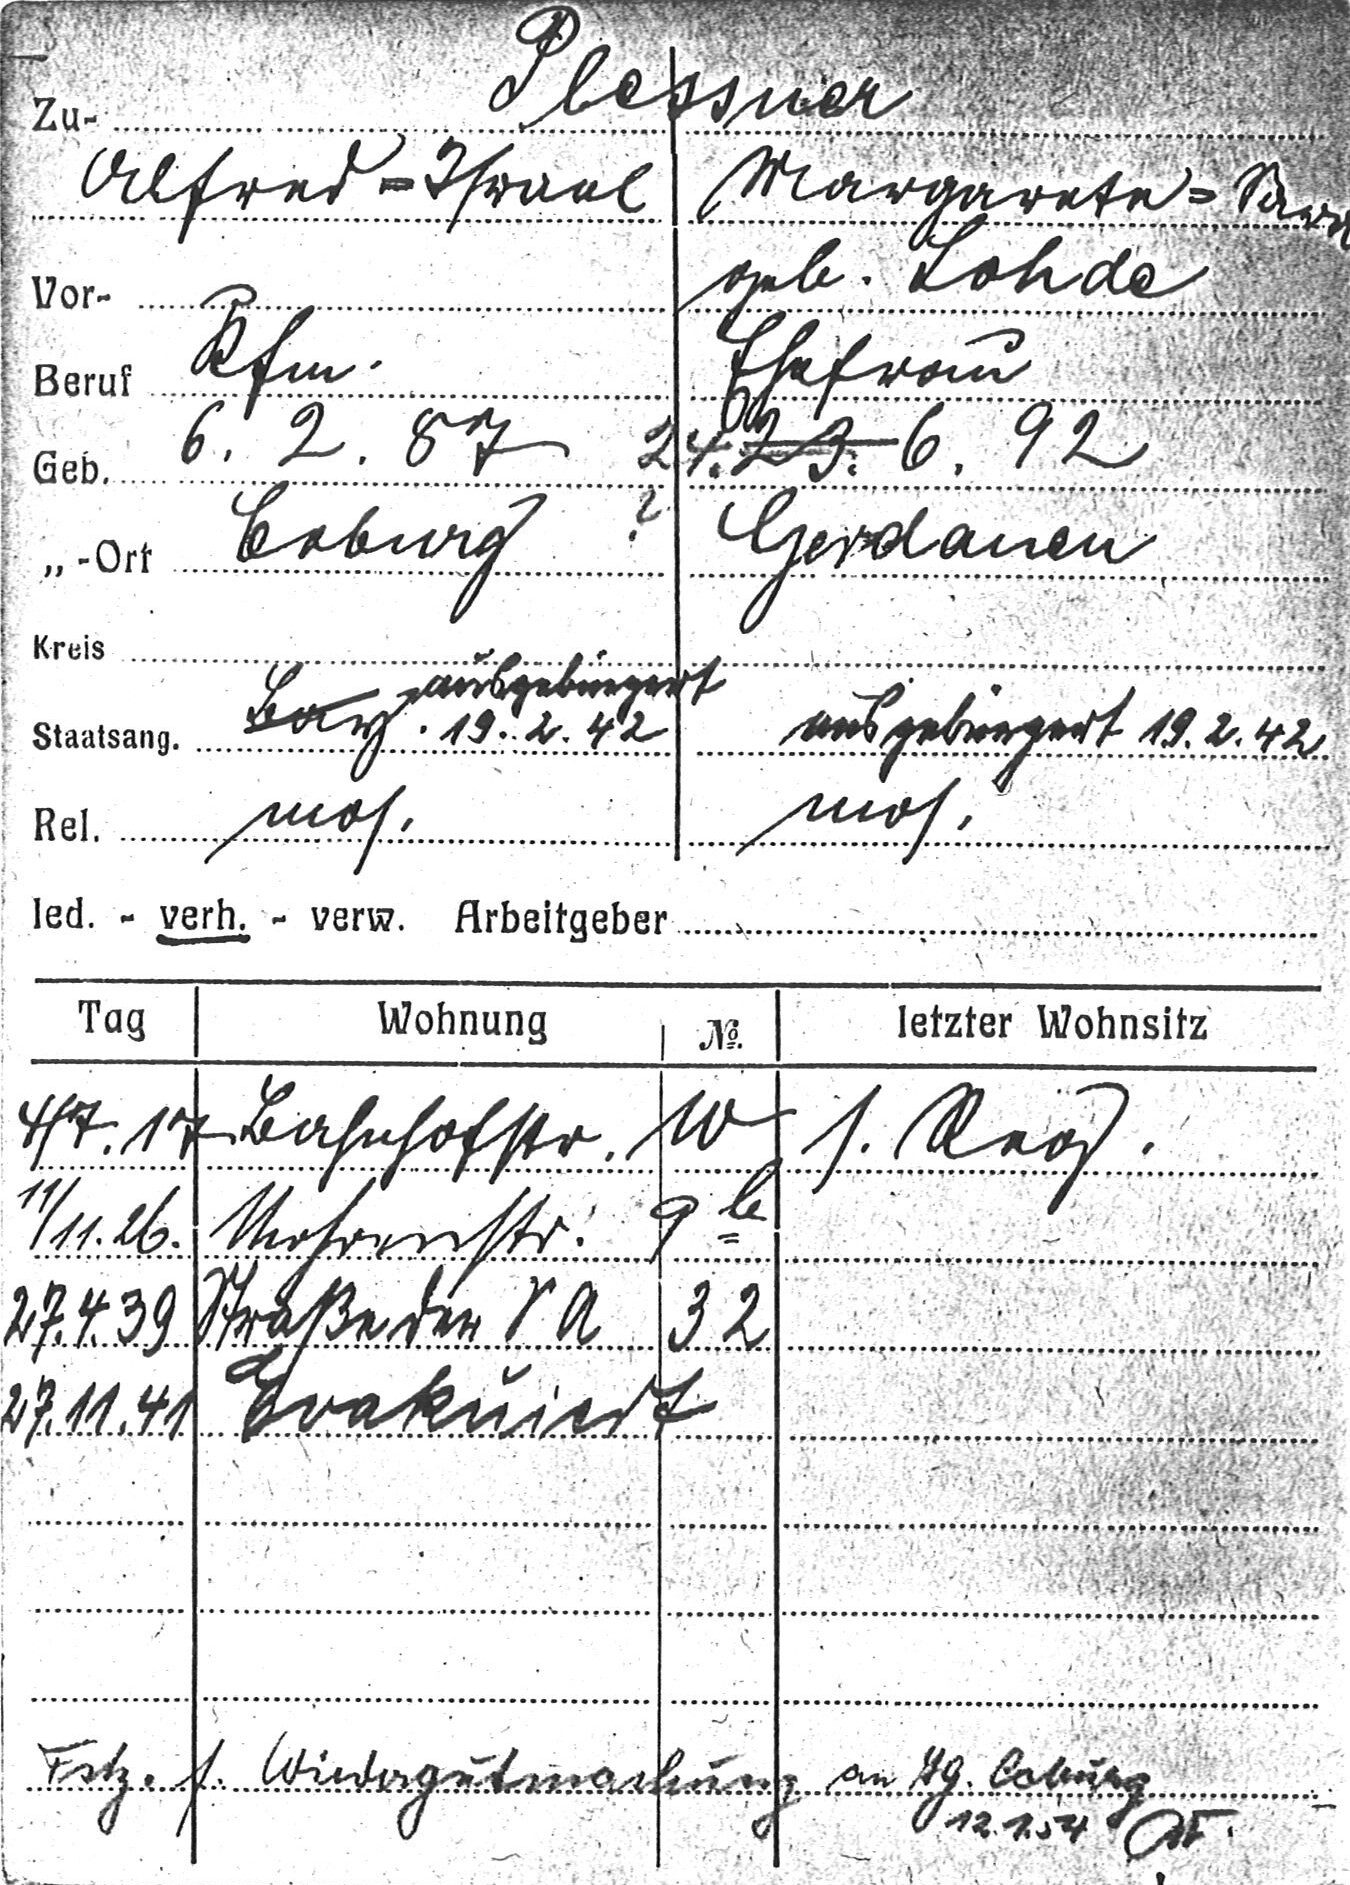 Plessner
Zu-
Alfred=Israel Margarete=Sara
geb. Lohde
Vor-
Kfm. Ehefrau
Beruf
Geb. 6. 2. 87 24. 23. 6. 92
„-Ort Coburg ? Gerdauen
Kreis
ausgebürgert
Staatsang. Bay. 19. 2. 42 ausgebürgert 19. 2. 42
Rel. mos. mos.
led. - verh. - verw. Arbeitgeber
Tag Wohnung No. letzter Wohnsitz
4/7. 17 Bahnhofstr. 10 s. Reg.
11/11. 26. Mohrenstr. 9 b
27.4.39 Straße der SA 32
27.11.41 Evakuiert
f. Wiedergutmachung an Coburg
12.1.54